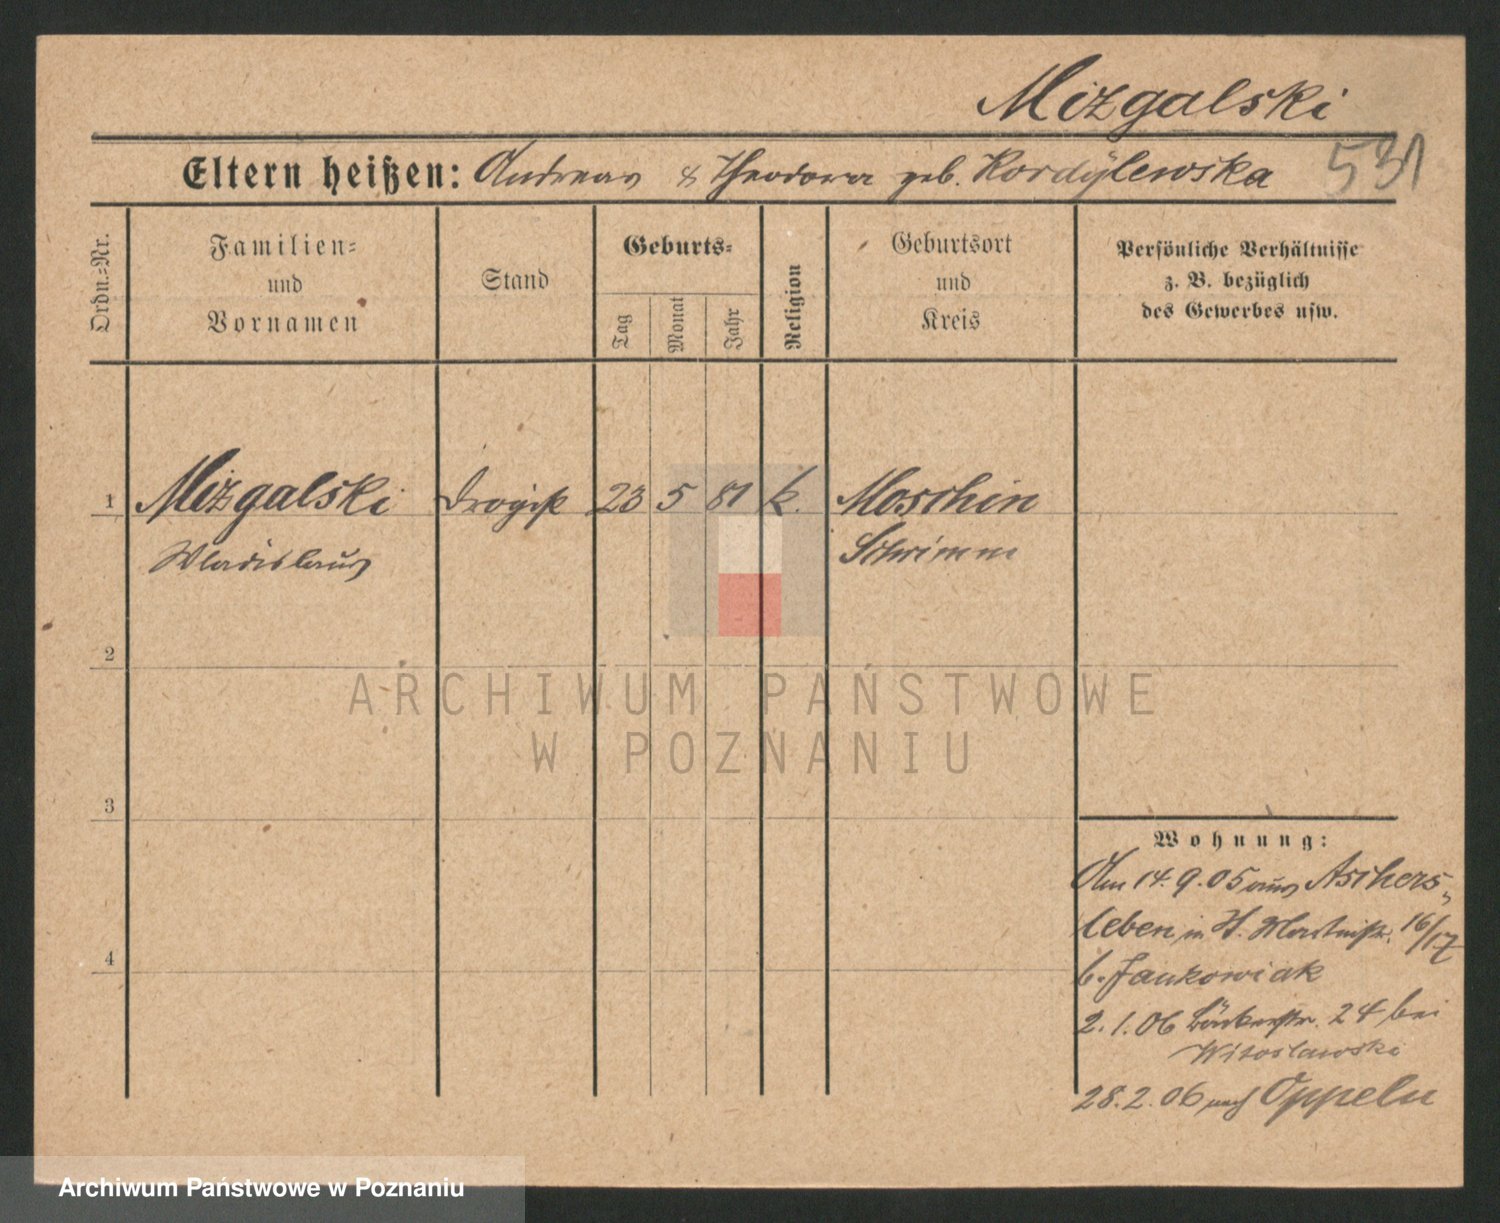 Mizgalski
Eltern heißen: Andreas & Theodora geb. Kordylewska 531
Ordn.=Nr.
Familien=
und
Vornamen
Stand
Geburts=
Tag
Monat
Jahr
Religion
Geburtsort
und
Kreis
Persönliche Verhältnisse
z. B. bezüglich
des Gewerbes usw.
1 Mizgalski Drogist 23 5 81 k. Moschin
Wladislaus Schrimm
2
ARCHIWUM PAŃSTWOWE
W POZNANIU
3
Wohnung:
Am 14.9.05 aus Aschers-
leben in H. 16/17
b. Jankowiak
2.1.06 Bäckerstr. 24 bei
Witoslawski
4
28.2.06 nach Oppeln
Archiwum Państwowe w Poznaniu